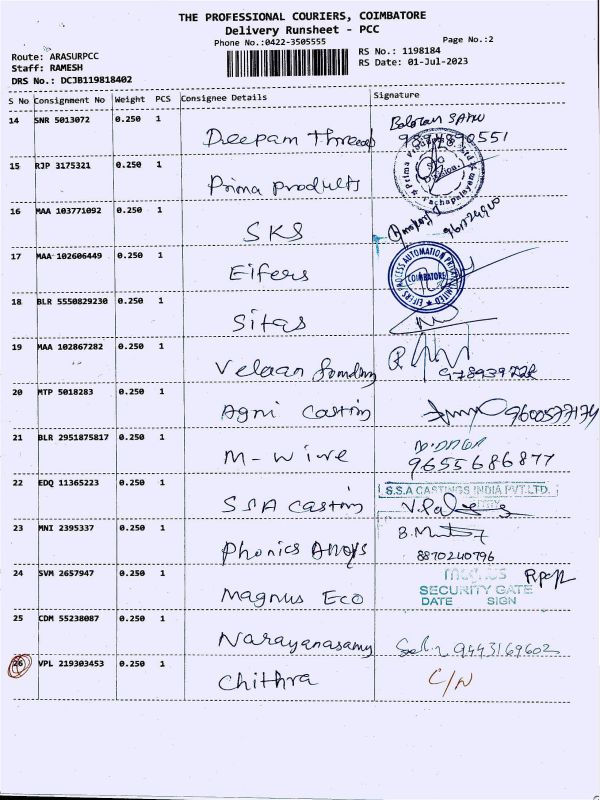 THE PROFESSIONAL COURIERS, COIMBATORE
Delivery Runsheet - PCC
Phone No.:0422-3505555
Page No.:2
Route: ARASURPCC
RS No.: 1198184
Staff: RAMESH
RS Date: 01-Jul-2023
DRS No.: DCJB119818402
S No Consignment No Weight PCS Consignee Details Signature
14 SNR 5013072 0.250 1 Deepam Threads 9894890551
15 RJP 3175321 0.250 1 Prima Products
16 MAA 103771092 0.250 1 SKS
17 MAA 102606449 0.250 1 Eifers
EIFERS PROCESS AUTOMATION PRIVATE LIMITED
COIMBATORE
18 BLR 5550829230 0.250 1 Sitas
19 MAA 102867282 0.250 1 Velaan
20 MTP 5018283 0.250 1 Agni Casting 9600577174
21 BLR 2951875817 0.250 1 M-Wire 9655686877
22 EDQ 11365223 0.250 1 SSA Casting
S.S.A CASTINGS INDIA PVT.LTD.
23 MNI 2395337 0.250 1 Phonics 8870240796
24 SVM 2657947 0.250 1 Magnus Eco
magnus
SECURITY GATE
DATE SIGN
25 CDM 55238087 0.250 1 Narayanasamy 9443169602
26 VPL 219303453 0.250 1 Chithra C/N